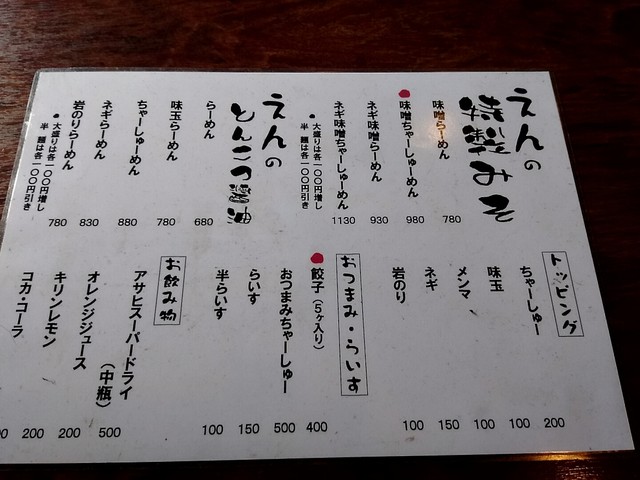 えんの
特製みそ
味噌らーめん 780
味噌ちゃーしゅーめん 980
ネギ味噌らーめん 930
ネギ味噌ちゃーしゅーめん 1130
・大盛りは各一〇〇円増し
半麺は各一〇〇円引き
えんの
とんこつ醤油
らーめん 680
味玉らーめん 780
ちゃーしゅーめん 880
ネギらーめん 830
岩のりらーめん 780
・大盛りは各一〇〇円増し
半麺は各一〇〇円引き
トッピング
ちゃーしゅー 200
味玉 100
メンマ 100
ネギ 150
岩のり 100
おつまみ・らいす
餃子(5ヶ入り) 400
おつまみちゃーしゅー 500
らいす 150
半らいす 100
お飲み物
アサヒスーパードライ
(中瓶) 500
オレンジジュース 200
キリンレモン 200
コカ・コーラ